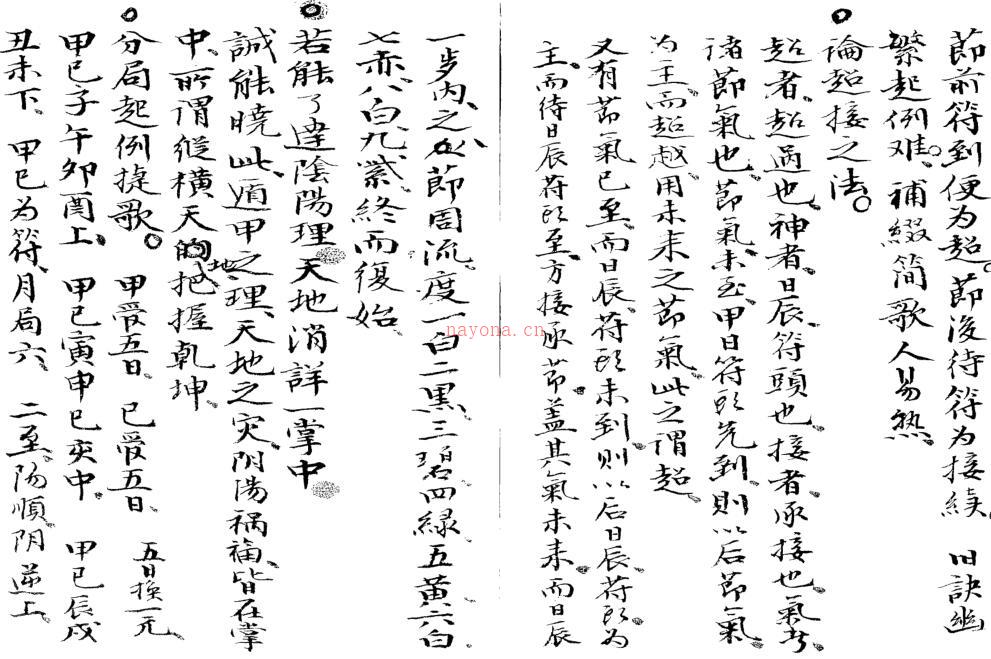 節前符到便为超。節後待符为接续。 旧訣幽
繁起例难。補綴简歌人易熟。
論超接之法。
超者、超过也。神者、日辰、符頭也。接者、承接也。氣者、
诸節氣也。節氣未至、甲日符頭先到、則以后節氣
为主而超越用未来之節氣、此之谓超。
又有節氣已至、而日辰、符頭未到、則以后日辰符頭为
主、而待日辰符頭至、方接承節、盖其氣未来、而日辰
一步内、之 節周流、度一白二黑、三碧四绿、五黄六白
七赤、八白九紫、終而復始、
若能了達陰陽理 天地消詳一掌中
誠能曉此、遁甲之理、天地之灾、阴陽禍福、皆在掌
中、所谓縱横天地的把握乾坤、
分局起例捷歌。 甲受五日、 己受五日、 五日换一元、
甲己子午卯酉上、 甲己寅申巳亥中、 甲己辰戌
丑未下、 甲己为符、月局六、 二至陽順阴逆上、
nayona.cn